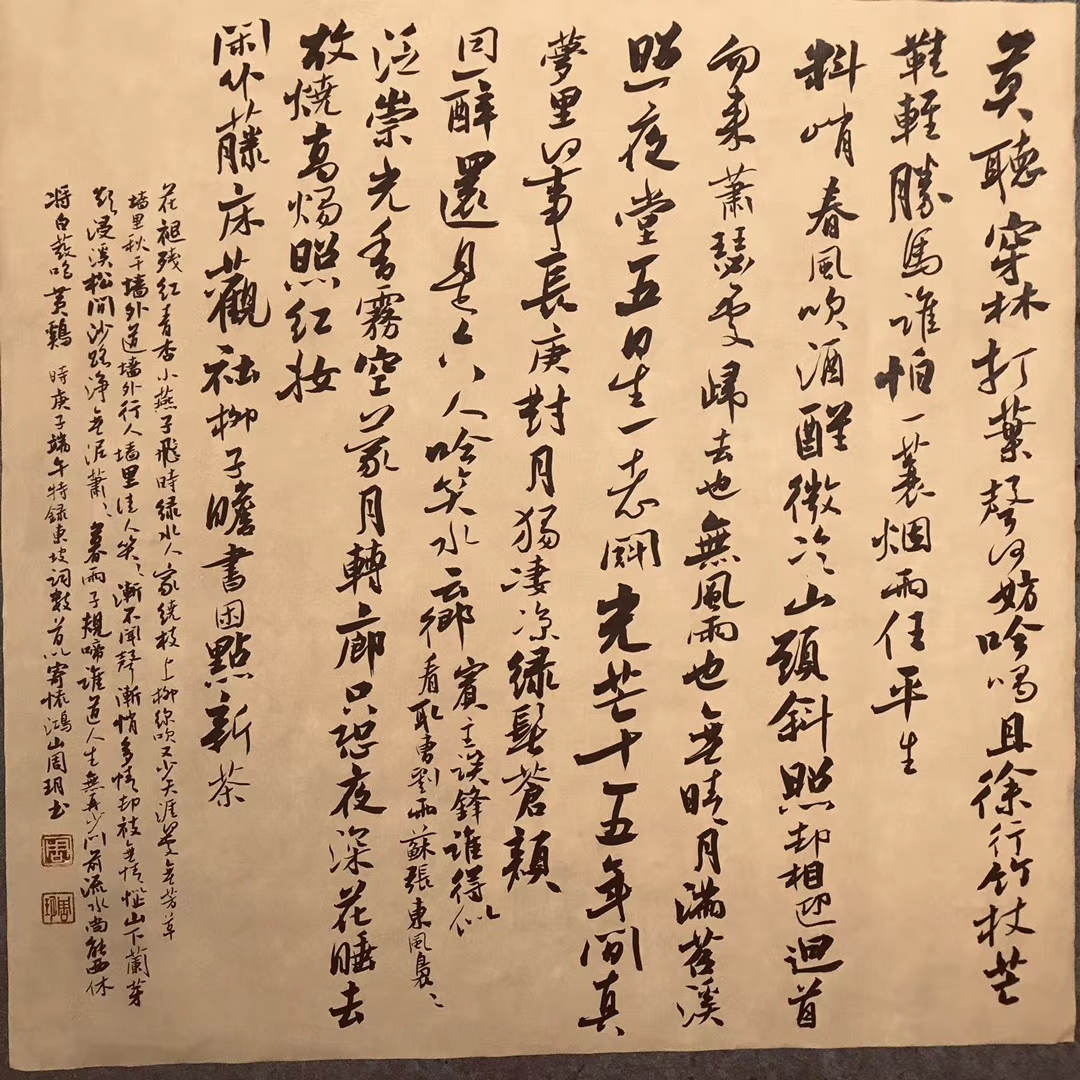 莫聽穿林打葉聲何妨吟嘯且徐行竹杖芒
鞋輕勝馬誰怕一蓑烟雨任平生
料峭春風吹酒醒微冷山頭斜照却相迎迴首
向来蕭瑟處歸去也無風雨也無晴月滿苕溪
照夜堂五星一老鬥光芒十五年間真
夢里何事長庚對月獨凄凉绿髮蒼顔
同一醉還是六人吟笑水云鄉賓主談鋒誰得似
看取曹劉兩蘇張東風裊、
泛崇光香霧空蒙月轉廊只恐夜深花睡去
故燒高燭照红妆
闲卧藤床觀社柳子瞻書困點新茶
花褪残红青杏小燕子飛時绿水人家绕枝上柳绵吹又少天涯何處無芳草
墙里秋千墙外道墙外行人墙里佳人笑、漸不闻聲漸悄多情却被無情惱山下蘭芽
短浸溪松間沙路净無泥蕭、暮雨子規啼誰道人生無再少門前流水尚能西休
将白髮唱黄鷄 時庚子端午特録東坡詞數首以寄懷鴻山周玥書